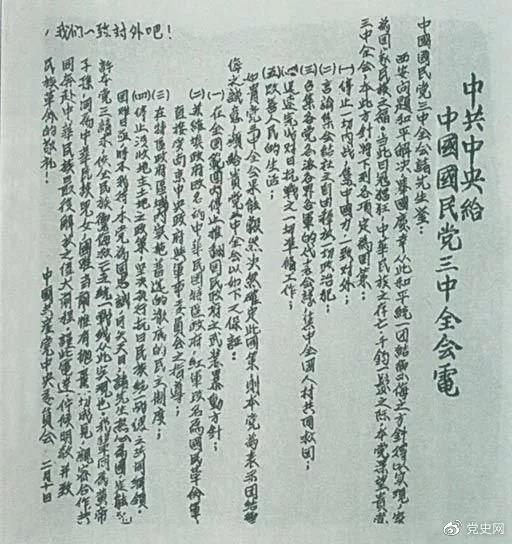 我們一致対外吧！
中共中央給
中國國民党三中全会電
中國國民党三中全会諸先生鑒：
西安問題和平解决，舉國慶幸，从此和平統一團結禦侮之方針得以实現，实
為國家民族之福。当此日寇猖狂，中華民族之存亡，千鈞一髮之际，本党深望貴党
三中全会，本此方針，將下列各項，定為國策：
(一)停止一切內战，集中國力，一致对外；
(二)言論集会結社之自由，釋放一切政治犯；
(三)召集各党各派各界各軍的代表会議，集中全國人材，共同救國；
(四)迅速完成对日抗戰之一切準備工作；
(五)改善人民的生活；
如貴党三中全会果能毅然决然確定此國策，則本党為表示團結禦
侮之誠意，願給貴党三中全会以如下之保証：
(一)在全國範圍內停止推翻國民政府之武裝暴動方針；
(二)蘇維埃政府改名為中華民國特區政府，紅軍改名為國民革命軍，
直接受南京中央政府與軍事委員会之指導；
(三)在特區政府區域內，实施普選的徹底的民主制度；
(四)停止没收地主土地之政策，坚决执行抗日民族統一战线之共同綱領。
國难日亟，时不我待，本党為國忠誠，可矢天日，諸先生热心為國，定能允
許本党之請求，使全民族禦侮救亡之統一战线从此实現也。我輩同為黃帝
子孫，同為中華民族兒女，國难当前，惟有拋棄一切成見，親密合作，共
同奔赴中華民族最後解放之偉大前程。謹此電達，佇候明教，并致
民族革命的敬礼！
中國共產党中央委員会 二月十日
党史网